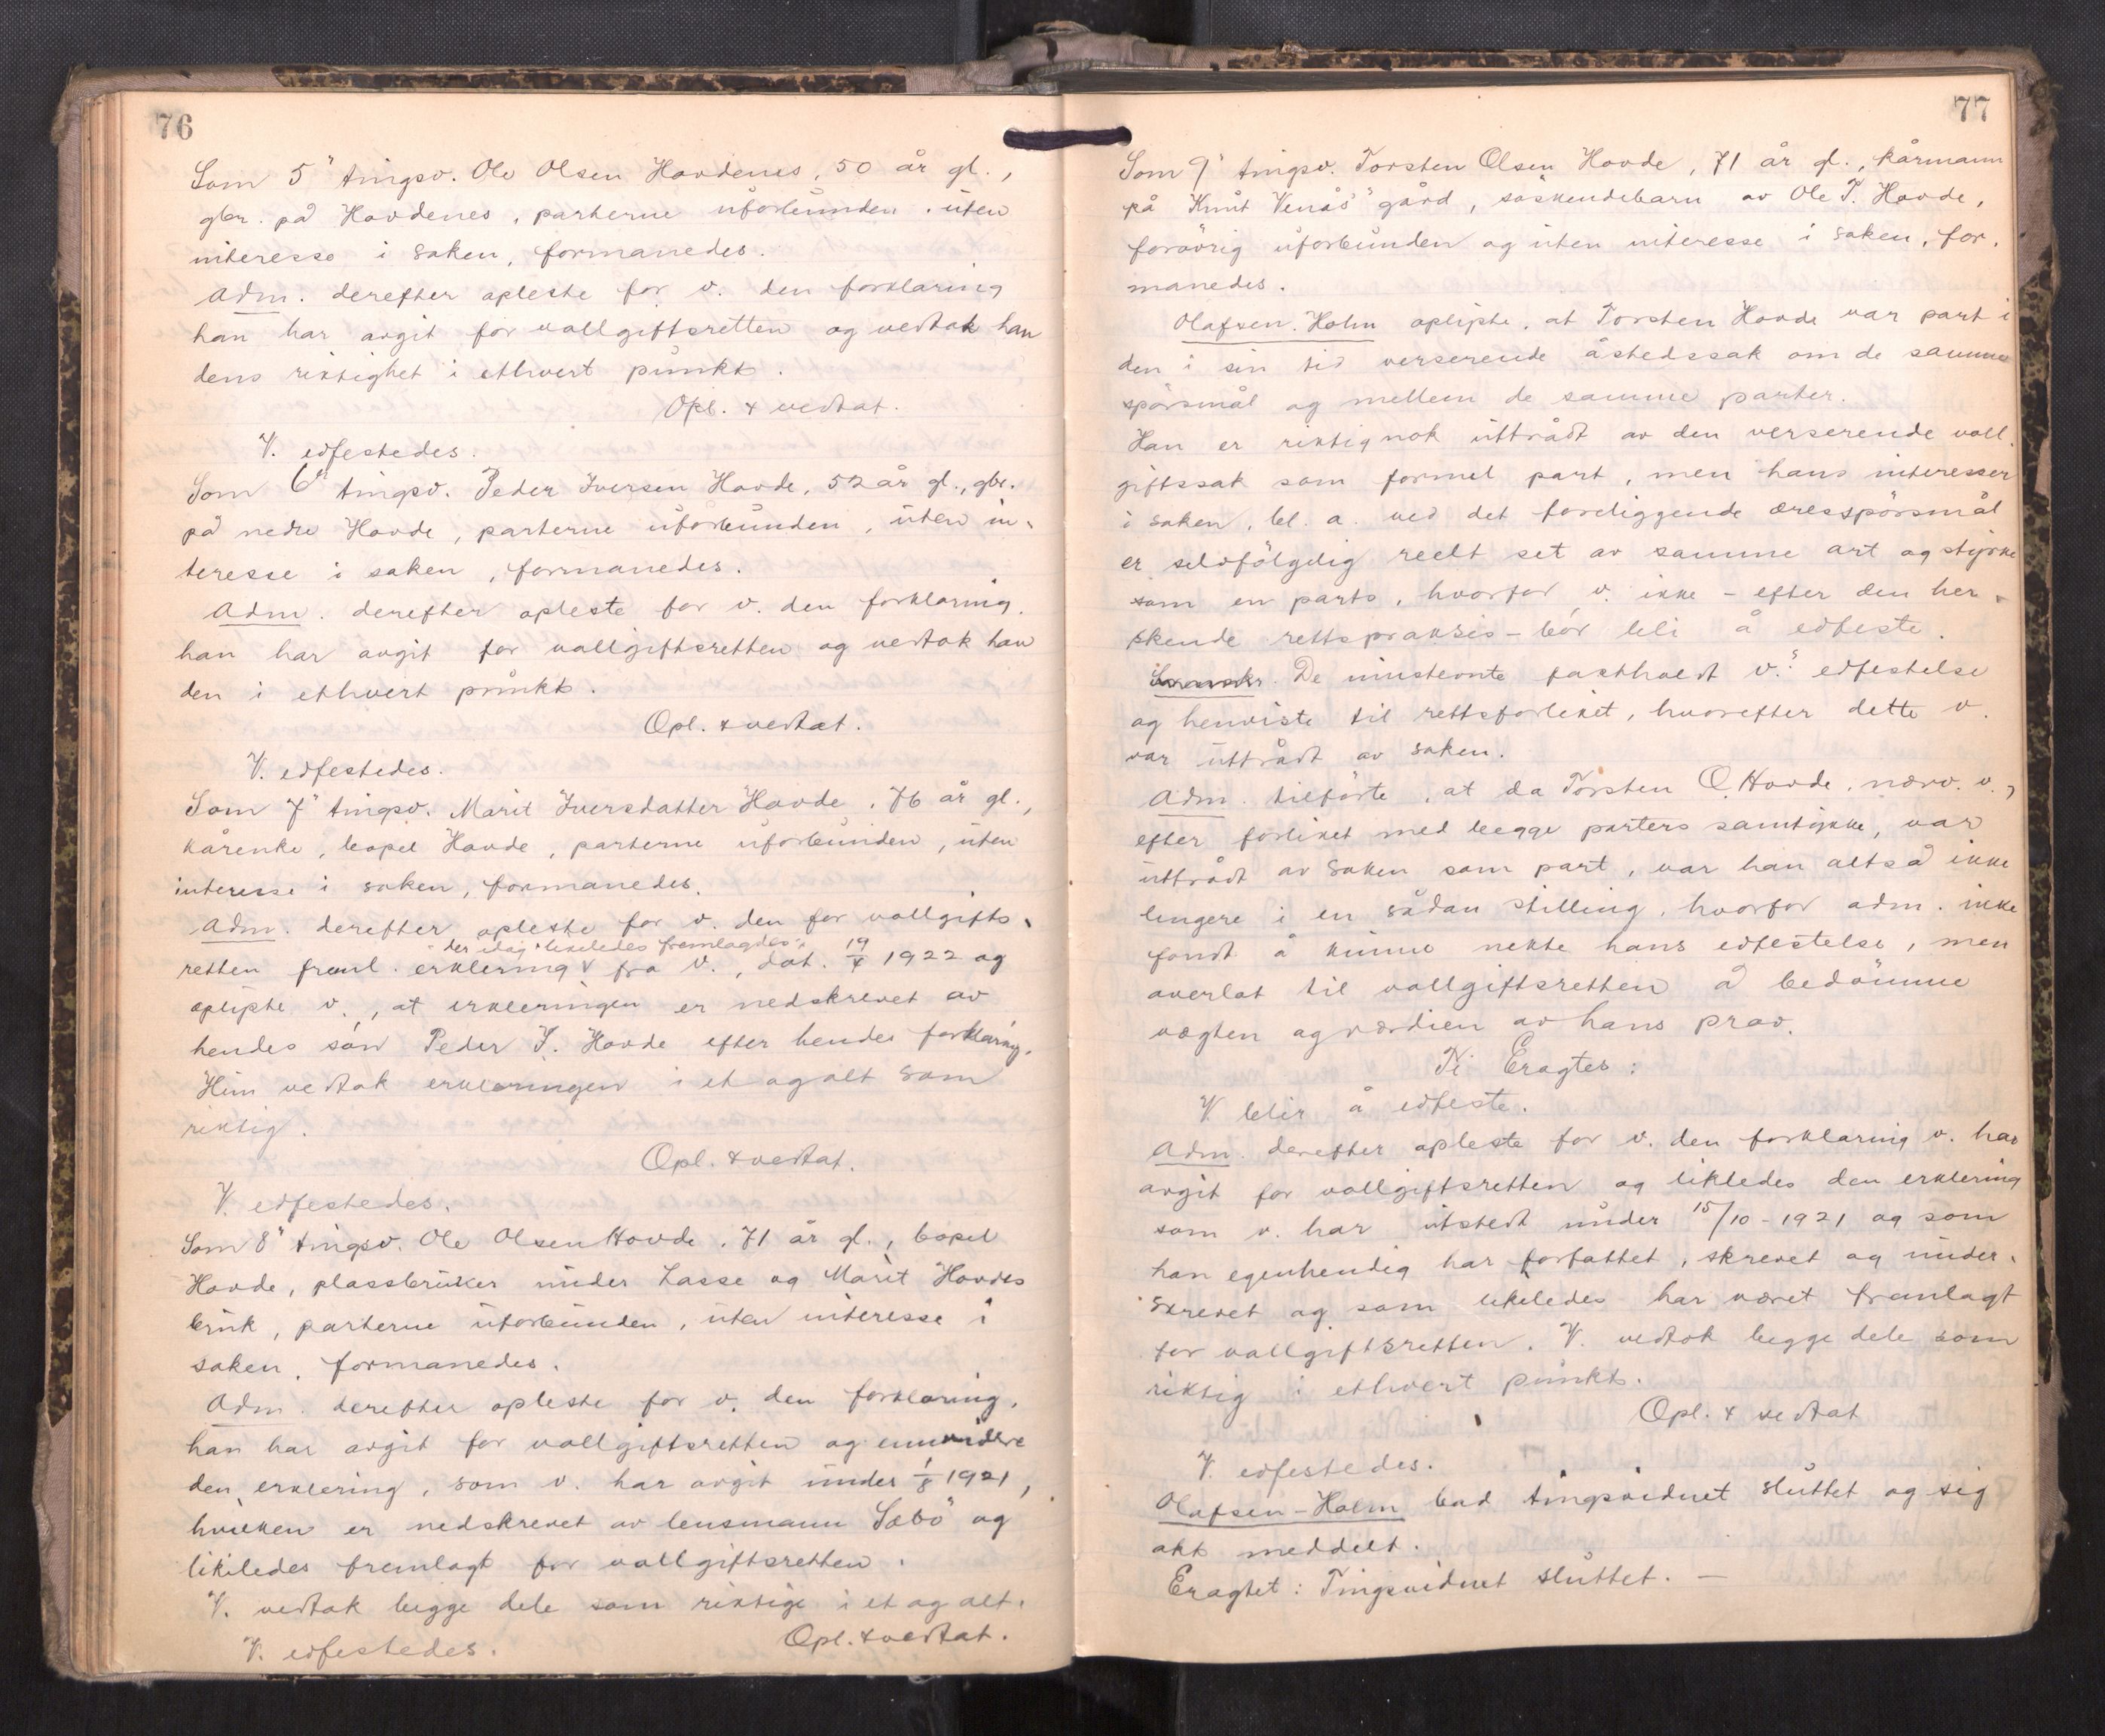 76
Som 5" tingsv. Ole Olsen Hovdenes, 50 år gl.,
gbr. på Hovdenes, parterne uforbunden, uten
interesse i saken, formanedes.
Adm. derefter opleste for v. den forklaring
han har avgit for vollgiftsretten og vedtok han
dens riktighet i ethvert punkt.
Opl. & vedtat.
V. edfestedes.
Som 6" tingsv. Peder Iversen Hovde, 52 år gl., gbr.
på nedre Hovde, parterne uforbunden, uten in-
teresse i saken, formanedes.
Adm. derefter opleste for v. den forklaring,
han har avgit for vollgiftsretten og vedtok han
den i ethvert punkt.
Opl. & vedtat.
V. edfestedes.
Som 7" tingsv. Marit Iversdatter Hovde, 76 år gl.,
kårenke, bopel Hovde, parterne uforbunden, uten
interesse i saken, formanedes.
Adm. derefter opleste for v. den for vollgifts-
der idag likeledes fremlagdes
retten freml. erklering fra v., dat. 19/4 1922 og
oplyste v., at erkleringen er nedskrevet av
hendes sön Peder I. Hovde efter hendes forklaring.
Hun vedtok erkleringen i et og alt som
riktig.
Opl. & vedtat.
V. edfestedes.
Som 8" tingsv. Ole Olsen Hovde, 71 år gl., bopel
Hovde, plassbruker under Lasse og Marit Hovdes
bruk, parterne uforbunden, uten interesse i
saken, formanedes.
Adm. derefter opleste for v. den forklaring,
han har avgit for vollgiftsretten og enn videre
den erklering, som v. har avgit under 1/8 1921,
hvilken er nedskrevet av lensmann Sæbö og
likeledes fremlagt for vollgiftsretten.
V. vedtok begge dele som riktige i et og alt.
Opl. & vedtat.
V. edfestedes.
77
Som 9" tingsv. Torsten Olsen Hovde, 71 år gl., kårmann
på Knut Venås' gård, söskendebarn av Ole T. Hovde,
forövrig uforbunden og uten interesse i saken, for-
manedes.
Olafsen-Holm oplyste, at Torsten Hovde var part i
den i sin tid verserende åstedssak om de samme
spörsmål og mellem de samme parter.
Han er riktignok uttrådt av den verserende voll-
giftssak som formel part, men hans interesser
i saken, bl. a. ved det foreliggende æresspörsmål
er selvfölgelig reelt set av samme art og styrke
som en parts, hvorfor v. ikke – efter den her-
skende rettspraksis – bör bli å edfeste.
De innstevnte fastholdt v.s edfestelse
og henviste til rettsforliket, hvorefter dette v.
var uttrådt av saken.
Adm. tilförte, at da Torsten O. Hovde, nærv. v.,
efter forliket med begge parters samtykke, var
uttrådt av saken som part, var han altså ikke
lengere i en sådan stilling, hvorfor adm. ikke
fandt å kunne nekte hans edfestelse, men
overlot til vollgiftsretten å bedömme
vægten og værdien av hans prov.
Ti Eragtes:
V. blir å edfeste.
Adm. derefter opleste for v. den forklaring v. har
avgit for vollgiftsretten og likledes den erklering
som v. har utstedt under 15/10 - 1921 og som
han egenhendig har forfattet, skrevet og under-
skrevet og som likeledes har været fremlagt
for vollgiftsretten. V. vedtok begge dele som
riktig i ethvert punkt.
Opl. & vedtat
V. edfestedes.
Olafsen-Holm bad tingsvidnet sluttet og sig
akt meddelt.
Eragtet: Tingsvidnet sluttet. —